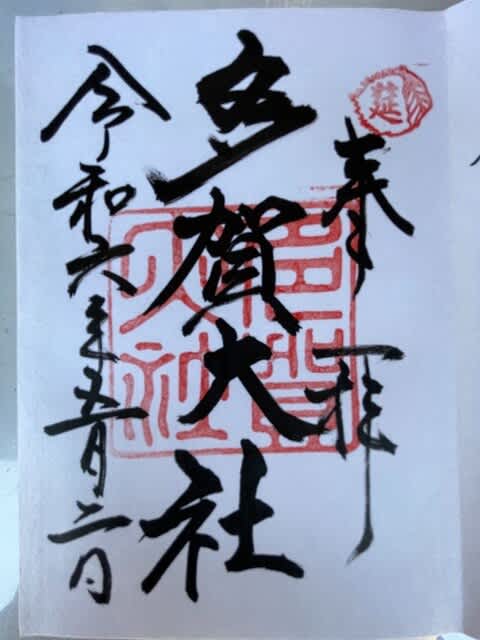 奉拝
多賀大社
多賀大社
令和六年五月二日